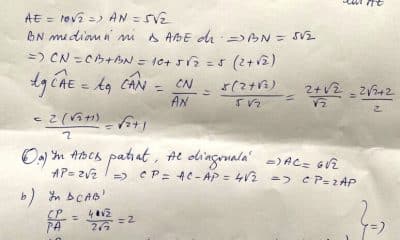 lui AE
AE = 10√2 => AN = 5√2
BN mediană în Δ ABE dr. => BN = 5√2
=> CN = CB + BN = 10 + 5√2 = 5(2+√2)
tg CAE = tg CAN = CN/AN = 5(2+√2)/5√2 = 2+√2/√2 = 2√2+2/2
= 2(√2+1)/2 = √2+1
6 a) În ABCD pătrat, AC diagonală => AC = 6√2
AP = 2√2 => CP = AC - AP = 4√2 => CP = 2AP
b) În Δ CAB'
CP/PA = 4√2/2√2 = 2
} =>